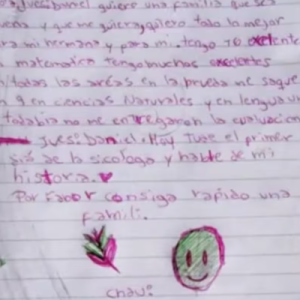 Juesdaniel quiere una familia que sea
y que me quiera quiero todo lo mejor
para mi hermana y para mi. tengo 10 exelente
matematica tengo muchos exelentes
todas las areas en la prueba me saque
a 9 en ciencias Naturales y en lengua un
todabia no me entregaron la evaluacion
Jues: Daniel. Hoy Tuve el primer
de la sicologa y hable de mi
historia.
Por Fabor consiga rapido una
Famili.
chau: